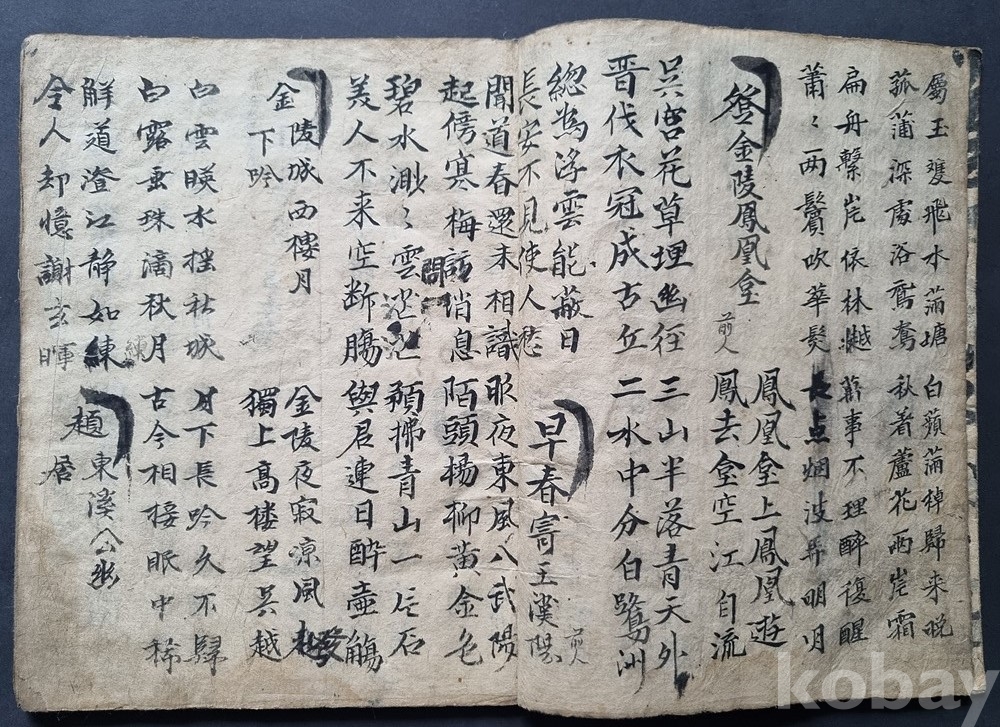 屬玉雙飛水蒲塘 白蘋蒲棹歸来晚
菰蒲深處浴鴛鴦 秋着蘆花兩岸霜
扁舟繫岸依林樾 萬事不理醉復醒
蕭〻兩鬢吹華髮 長点烟波弄明月
登金陵鳳凰臺 前人
鳳凰臺上鳳凰遊
鳳去臺空江自流
吳宮花草埋幽徑 三山半落青天外
晋代衣冠成古丘 二水中分白鷺洲
總為浮雲能蔽日
長安不見使人愁
早春寄王漢陽 前人
聞道春還未相識 昨夜東風入武陽
起傍寒梅訪消息 陌頭楊柳黃金色
碧水渺〻雲茫〻 預拂青山一片石
美人不来空断膓 與君連日醉壷觴
金陵城西樓月
下吟
金陵夜寂凉風發
獨上高楼望吳越
白雲暎水搖秋城 月下長吟久不歸
白露垂珠滴秋月 古今相接眼中稀
解道澄江静如練
令人却憶謝玄暉
題東溪公幽
居
kobay